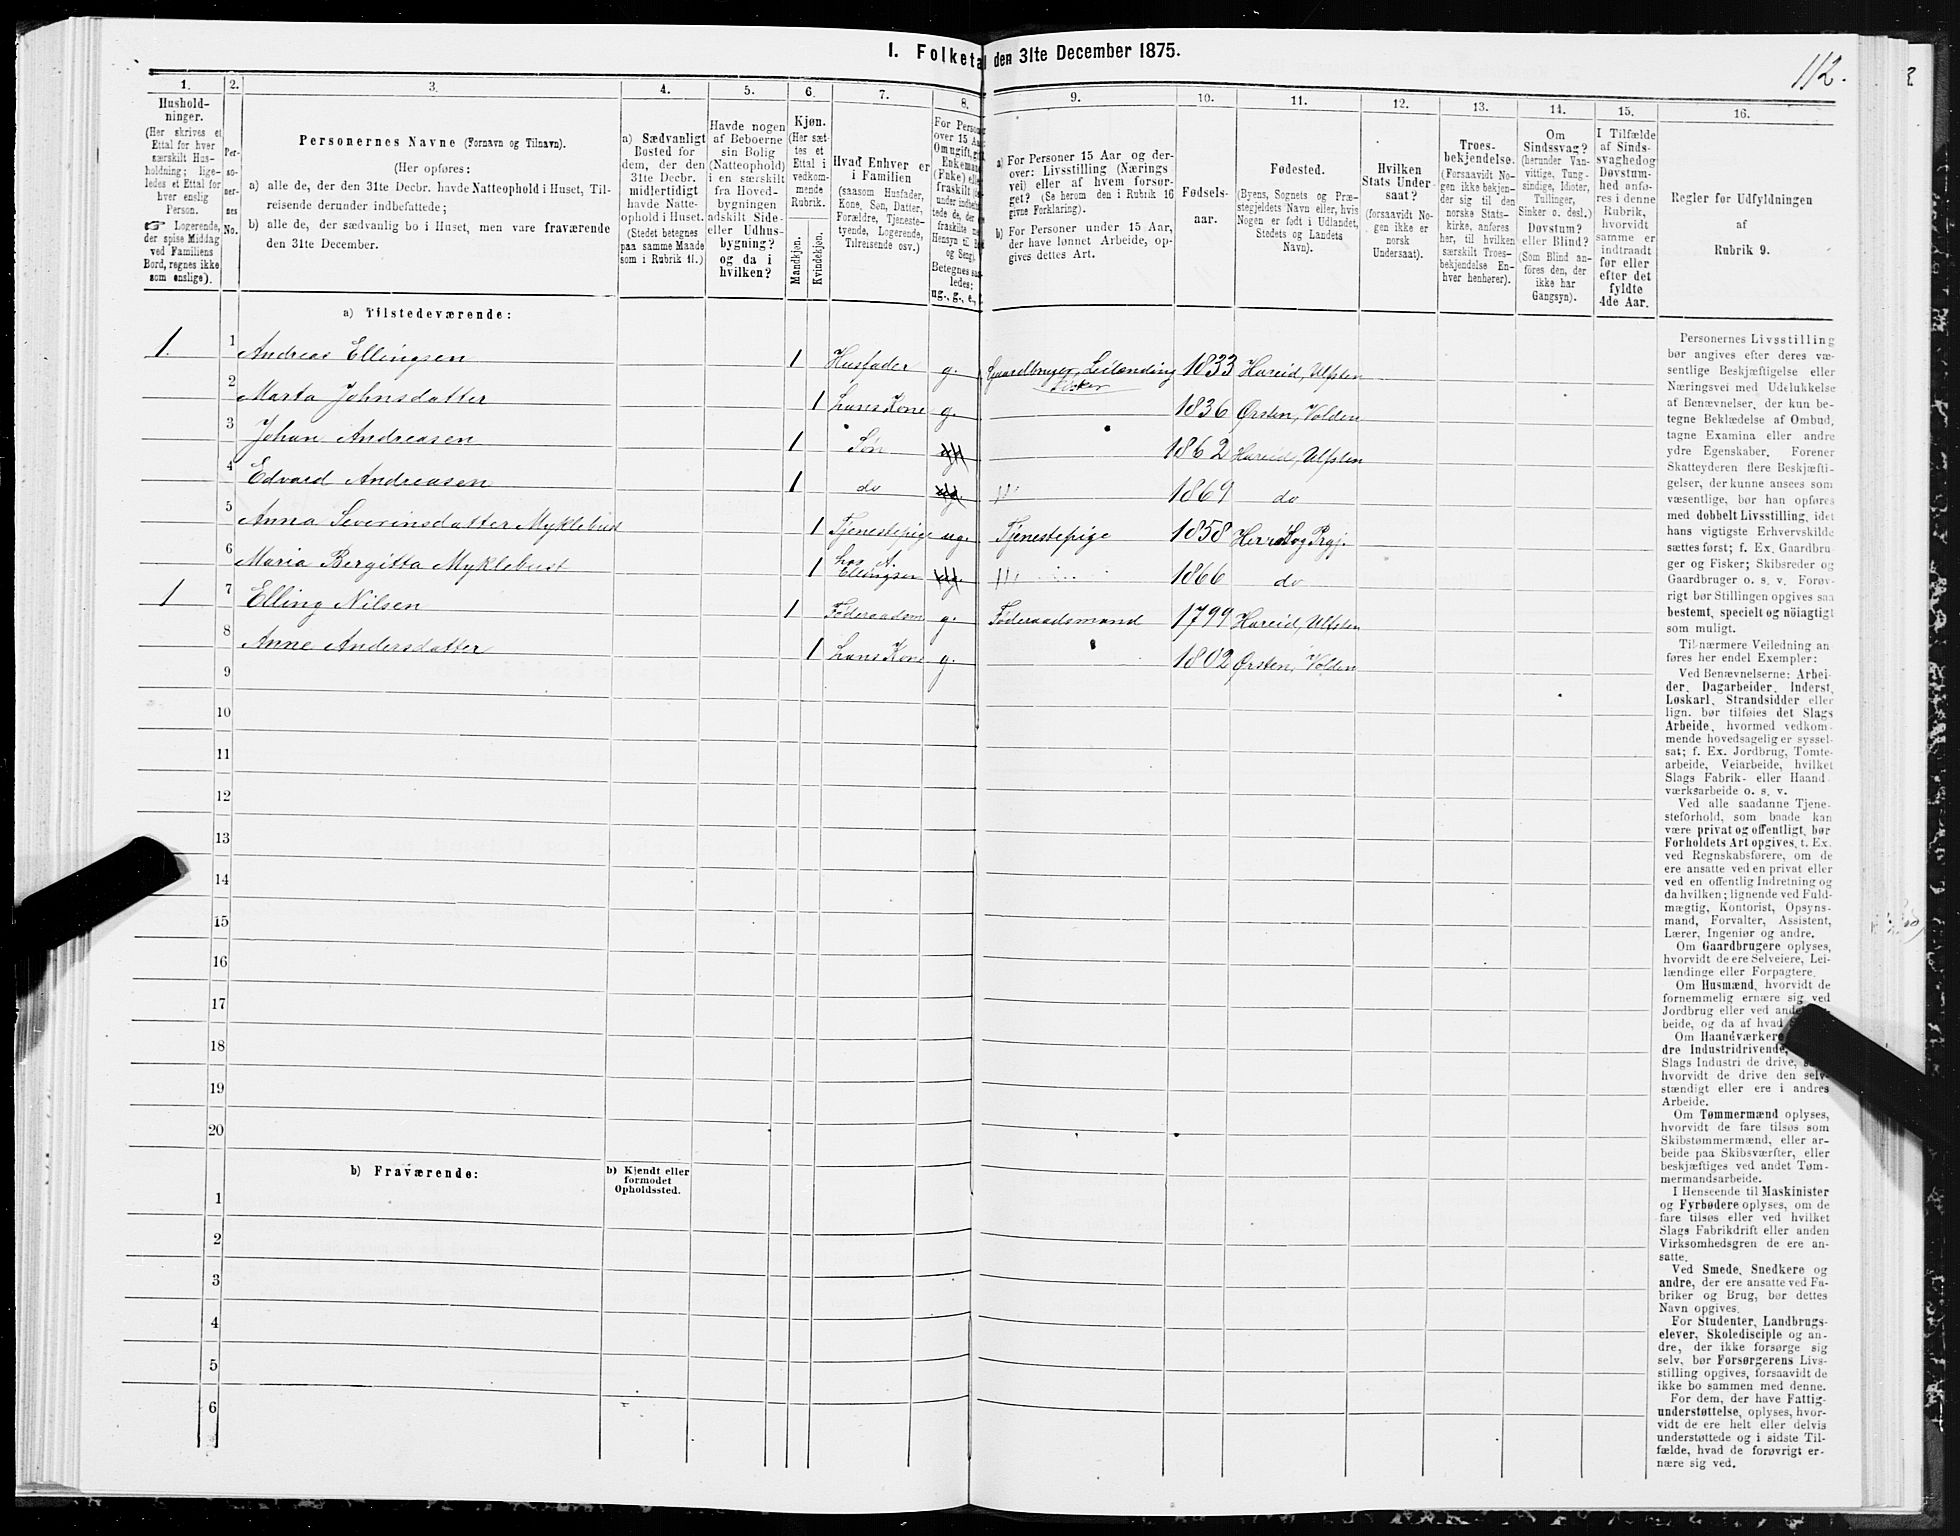 I. Folketal den 31te December 1875.
112.
1.
2.
3.
4.
5.
6.
7.
8.
9.
10.
11.
12.
13.
14.
15.
16.
Hushold-
ninger.
(Her skrives et
Ettal for hver
særskilt Hus-
holdning; lige-
ledes et Ettal for
hver enslig
Person.
☞ Logerende,
der spise Middag
ved Familiens
Bord, regnes ikke
som enslige).
Per-
so-
ner-
nes
No.
Personernes Navne (Fornavn og Tilnavn).
(Her opføres:
a) alle de, der den 31te Decbr. havde Natteophold i Huset, Til-
reisende derunder indbefattede;
b) alle de, der sædvanlig bo i Huset, men vare fraværende
den 31te December.
a) Sædvanligt
Bosted for
dem, der den
31te Decbr.
midlertidigt
havde Natte-
ophold i Huset.
(Stedet betegnes
paa samme Maade
som i Rubrik 11.)
Havde nogen
af Beboerne
sin Bolig
(Natteophold)
i en særskilt
fra Hoved-
bygningen
adskilt Side-
eller Udhus-
bygning?
og da i
hvilken?
Kjøn.
(Her sæt-
tes et
Ettal i
vedkom-
mende
Rubrik.)
Mandkjøn.
Kvindekjøn.
Hvad Enhver er
i Familien
(saasom Husfader,
Kone, Søn, Datter,
Forældre, Tjeneste-
tyende, Logerende,
Tilreisende osv.)
For Person
over 15 Aa
Omugift, gi
Enkeman
(Fake) el
fraskilt
under indbe
tede de, de
fraskilte
Hensyn til
og Seng).
Betegnes saa
ledes:
ug-, g-, e-, f.
a) For Personer 15 Aar og der-
over: Livsstilling (Nærings-
vei) eller af hvem forsør-
get? (Se herom den i Rubrik 16
givne Forklaring).
b) For Personer under 15 Aar,
der have lønnet Arbeide, op-
gives dettes Art.
Fødsels-
aar.
Fødested.
(Byens, Sognets og Præ-
stegjeldets Navn eller, hvis
Nogen er født i Udlandet,
Stedets og Landets
Navn).
Hvilken
Stats Under-
saat?
(forsaavidt No-
gen ikke er
norsk
Undersaat).
Troes-
bekjendelse.
(Forsaavidt No-
gen ikke bekjen-
der sig til den
norske Stats-
kirke, anføres
her, til hvilken
særskilt Troes-
bekjendelse En-
hver henhører).
Om
Sindssvag?
(herunder Van-
vittige, Tung-
sindige, Idioter,
Tullinger,
Sinker o. desl.)
Døvstum?
eller Blind?
(Som Blind an-
føres den, der
ikke har
Gangsyn).
I Tilfælde
af Sinds-
svaghedog
Døvstum-
hed anfø-
res i denne
Rubrik,
hvorvidt
samme er
indtraadt
før eller
efter det
fyldte
4de Aar.
Regler for Udfyldningen
af
Rubrik 9.
a) Tilstedeværende:
1 1 Andreas Ellingsen 1 Husfader g. Gaardbruger, Leilænding Fisker 1833 Hareid, Ulfsten
2 Marta Johnsdatter 1 hans Kone g. 1836 Ørsten, Volden
3 Johan Andreasen 1 Søn ug 1862 Hareid, Ulfsten
4 Edvard Andreasen 1 do ug. 1869 do
5 Anna Severinsdatter Myklebust 1 Tjenestepige ug. Tjenestepige 1858 Herrø Sog Prgj.
6 Maria Bergitta Myklebust 1 hos A. Ellingsen ug. 1866 do
1 7 Elling Nilsen 1 Føderaadsm g. Føderaadsmand 1799 Hareid, Ulfsten
8 Anne Andersdatter 1 hans Kone g. 1802 Ørsten, Volden
9
10
11
12
13
14
15
16
17
18
19
20
b) Fraværende:
b) Kjendt eller
formodet
Opholdssted.
1
2
3
4
5
6
Personernes Livsstilling
bør angives efter deres væ-
sentlige Beskjæftigelse eller
Næringsvei med Udelukkelse
af Benævnelser, der kun be-
tegne Beklædelse af Ombud,
tagne Examina eller andre
ydre Egenskaber. Forener
Skatteyderen flere Beskjæfti-
gelser, der kunne ansees som
væsentlige, bør han opføres
med dobbelt Livsstilling, idet
hans vigtigste Erhvervskilde
sættes først; f. Ex. Gaardbru-
ger og Fisker; Skibsreder og
Gaardbruger o. s. v. Forøv-
rigt bør Stillingen opgives saa
bestemt, specielt og nöiagtigt
som muligt.
Til nærmere Veiledning an-
føres her endel Exempler:
Ved Benævnelserne: Arbei-
der, Dagarbeider, Inderst,
Løskarl, Strandsidder eller
lign. bør tilføies det Slags
Arbeide, hvormed vedkom-
mende hovedsagelig er syssel-
sat; f. Ex. Jordbrug, Tomte-
arbeide, Veiarbeide, hvilket
Slags Fabrik- eller Haand-
værksarbeide o. s. v.
Ved alle saadanne Tjene-
steforhold, som baade kan
være privat og offentligt, bør
Forholdets Art opgives, t. Ex.
ved Regnskabsførere, om de
ere ansatte ved en privat eller
ved en offentlig Indretning og
da hvilken; lignende ved Fuld-
mægtig, Kontorist, Opsyns-
mand, Forvalter, Assistent,
Lærer, Ingeniør og andre.
Om Gaardbrugere oplyses,
hvorvidt de ere Selveiere, Lei-
lændinge eller Forpagtere.
Om Husmænd, hvorvidt de
fornemmelig ernære sig ved
Jordbrug eller ved andet
beide, og da af hvad
Om Haandværkere
dre Industridrivende,
Slags Industri de drive,
hvorvidt de drive den selv-
stændigt eller ere i andres
Arbeide.
Om Tømmermænd oplyses,
hvorvidt de fare tilsøs som
Skibstømmermænd, eller ar-
beide paa Skibsværfter, eller
beskjæftiges ved andet Tøm-
mermandsarbeide.
I Henseende til Maskinister
og Fyrbødere oplyses, om de
fare tilsøs eller ved hvilket
Slags Fabrikdrift eller anden
Virksomhedsgren de ere an-
satte.
Ved Smede, Snedkere og
andre, der ere ansatte ved Fa-
briker og Brug, bør dettes
Navn opgives.
For Studenter, Landbrugs-
elever, Skoledisciple og an-
dre, der ikke forsørge sig
selv, bør Forsørgerens Livs-
stilling opgives, forsaavidt de
ikke bo sammen med denne.
For dem, der have Fattig-
understøttelse, oplyses, hvor-
vidt de ere helt eller delvis
understøttede og i sidste Til-
fælde, hvad de forøvrigt er-
nære sig ved.